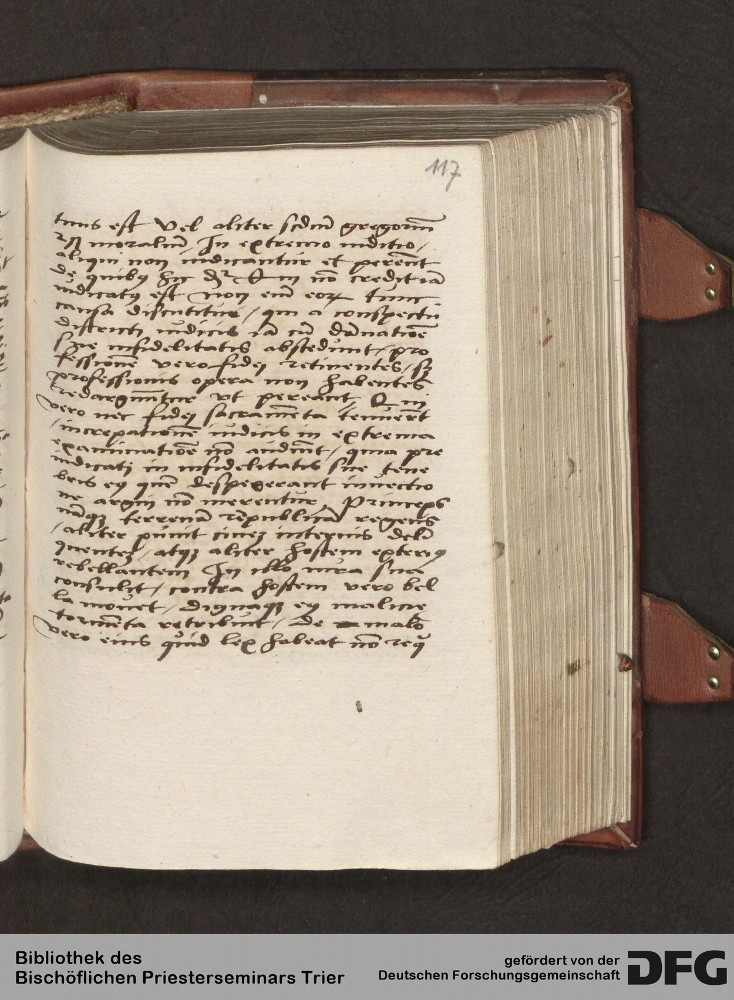 117
tuus est Vel aliter scdm gregorium
moraliu, In extremo iuditio,
aliqui non iudicantur et pereūt
de quibus hic dr Qui nō credit iā
iudicatus est non enī eorum tunc
causa discutitur, qui a conspectu
districti iudicis iā cū dānatiōe
sue infidelitatis abscedunt, pro
fessionē vero fidei retinentes, sed
professionis opera non habentes
redarguūtur vt pereant, Qui
vero nec fidei sacramēta tenuerūt
increpationē iudicis in extrema
examinatiōe nō audiūt, quia pre
iudicati in infidelitatis sue tene
bris eius quē despexerant inuectio
ne argui nō merentur, Princeps
nāque terrenā rēpublicā regens
aliter punit ciues internis delī
quentes, atque aliter hostem exterius
rebellantem In illo iura sua
consulit, contra hostem vero bel
la mouet, dignaque eius malicie
tormēta retribuit, de malo
vero eius quid lex habeat nō requi
Bibliothek des
Bischöflichen Priesterseminars Trier
gefördert von der
Deutschen Forschungsgemeinschaft
DFG